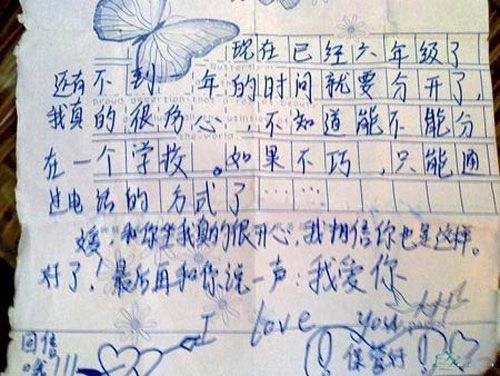 现在已经六年级了
还有不到一年的时间就要分开了,
我真的很伤心,不知道能不能分
在一个学校。如果不巧,只能通
过电话的方式了……
媛,和你坐我真的很开心,我相信你也是这样。
对了!最后再和你说一声:我爱你
I love you
回信
哦!!!
保管好